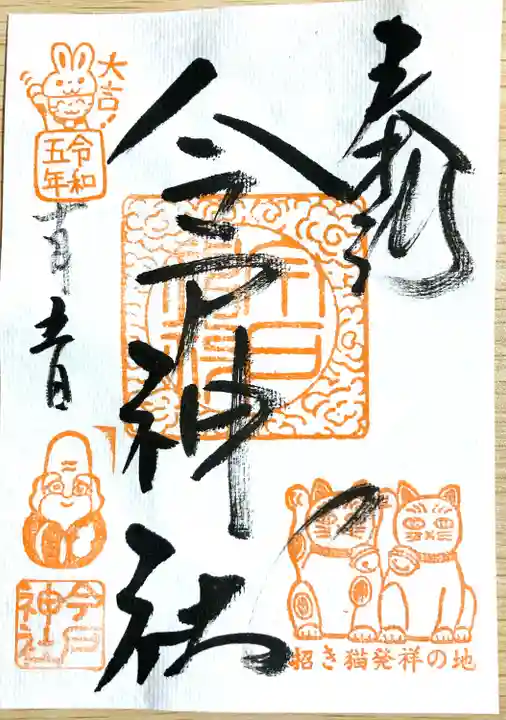 奉拝
今戸神社
大吉!
令和
五年
今戸
神社
招き猫発祥の地